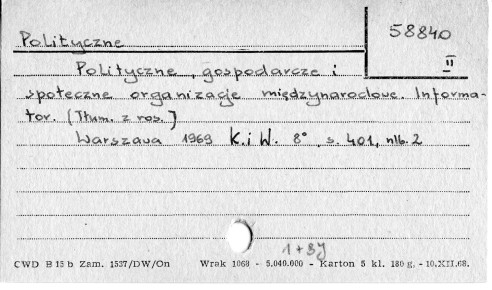 58840
II
Polityczne
Polityczne, gospodarcze i
społeczne organizacje międzynarodowe. Informa-
tor. (Tłum. z ros.]
Warszawa 1969 K. i W. 8° , s. 401, nlb. 2
1 + BJ
CWD B 15 b Zam. 1537/DW/On Wrak 1068 - 5.040.000 - Karton 5 kl. 180 g. - 10.XII.68.